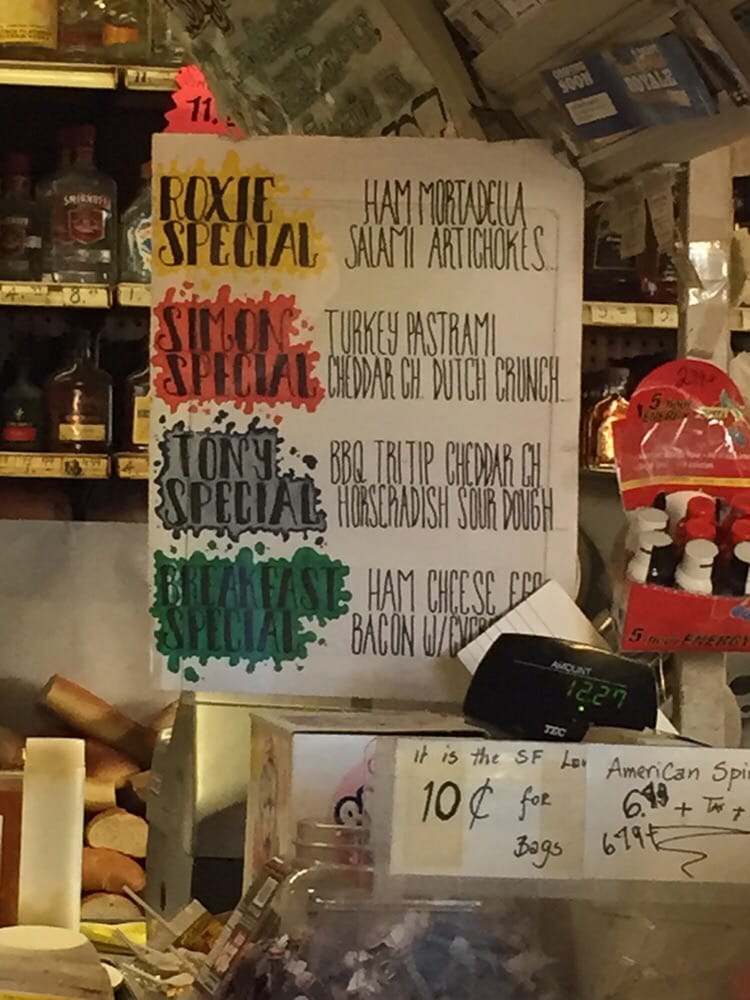 11.
ROYALE
SMIRNOFF
ROXIE
SPECIAL
HAM MORTADELLA
SALAMI ARTICHOKES...
SIMON
SPECIAL
TURKEY PASTRAMI
CHEDDAR CH. DUTCH CRUNCH...
TONY
SPECIAL
BBQ TRI TIP CHEDDAR CH
HORSERADISH SOUR DOUGH
BREAKFAST
SPECIAL
HAM CHEESE EGG
BACON W/
5-hour ENERGY
5-hour ENERGY
AMOUNT
12.27
TEC
it is the SF
10¢ for
Bags
American Spi
6.49 + Tax +